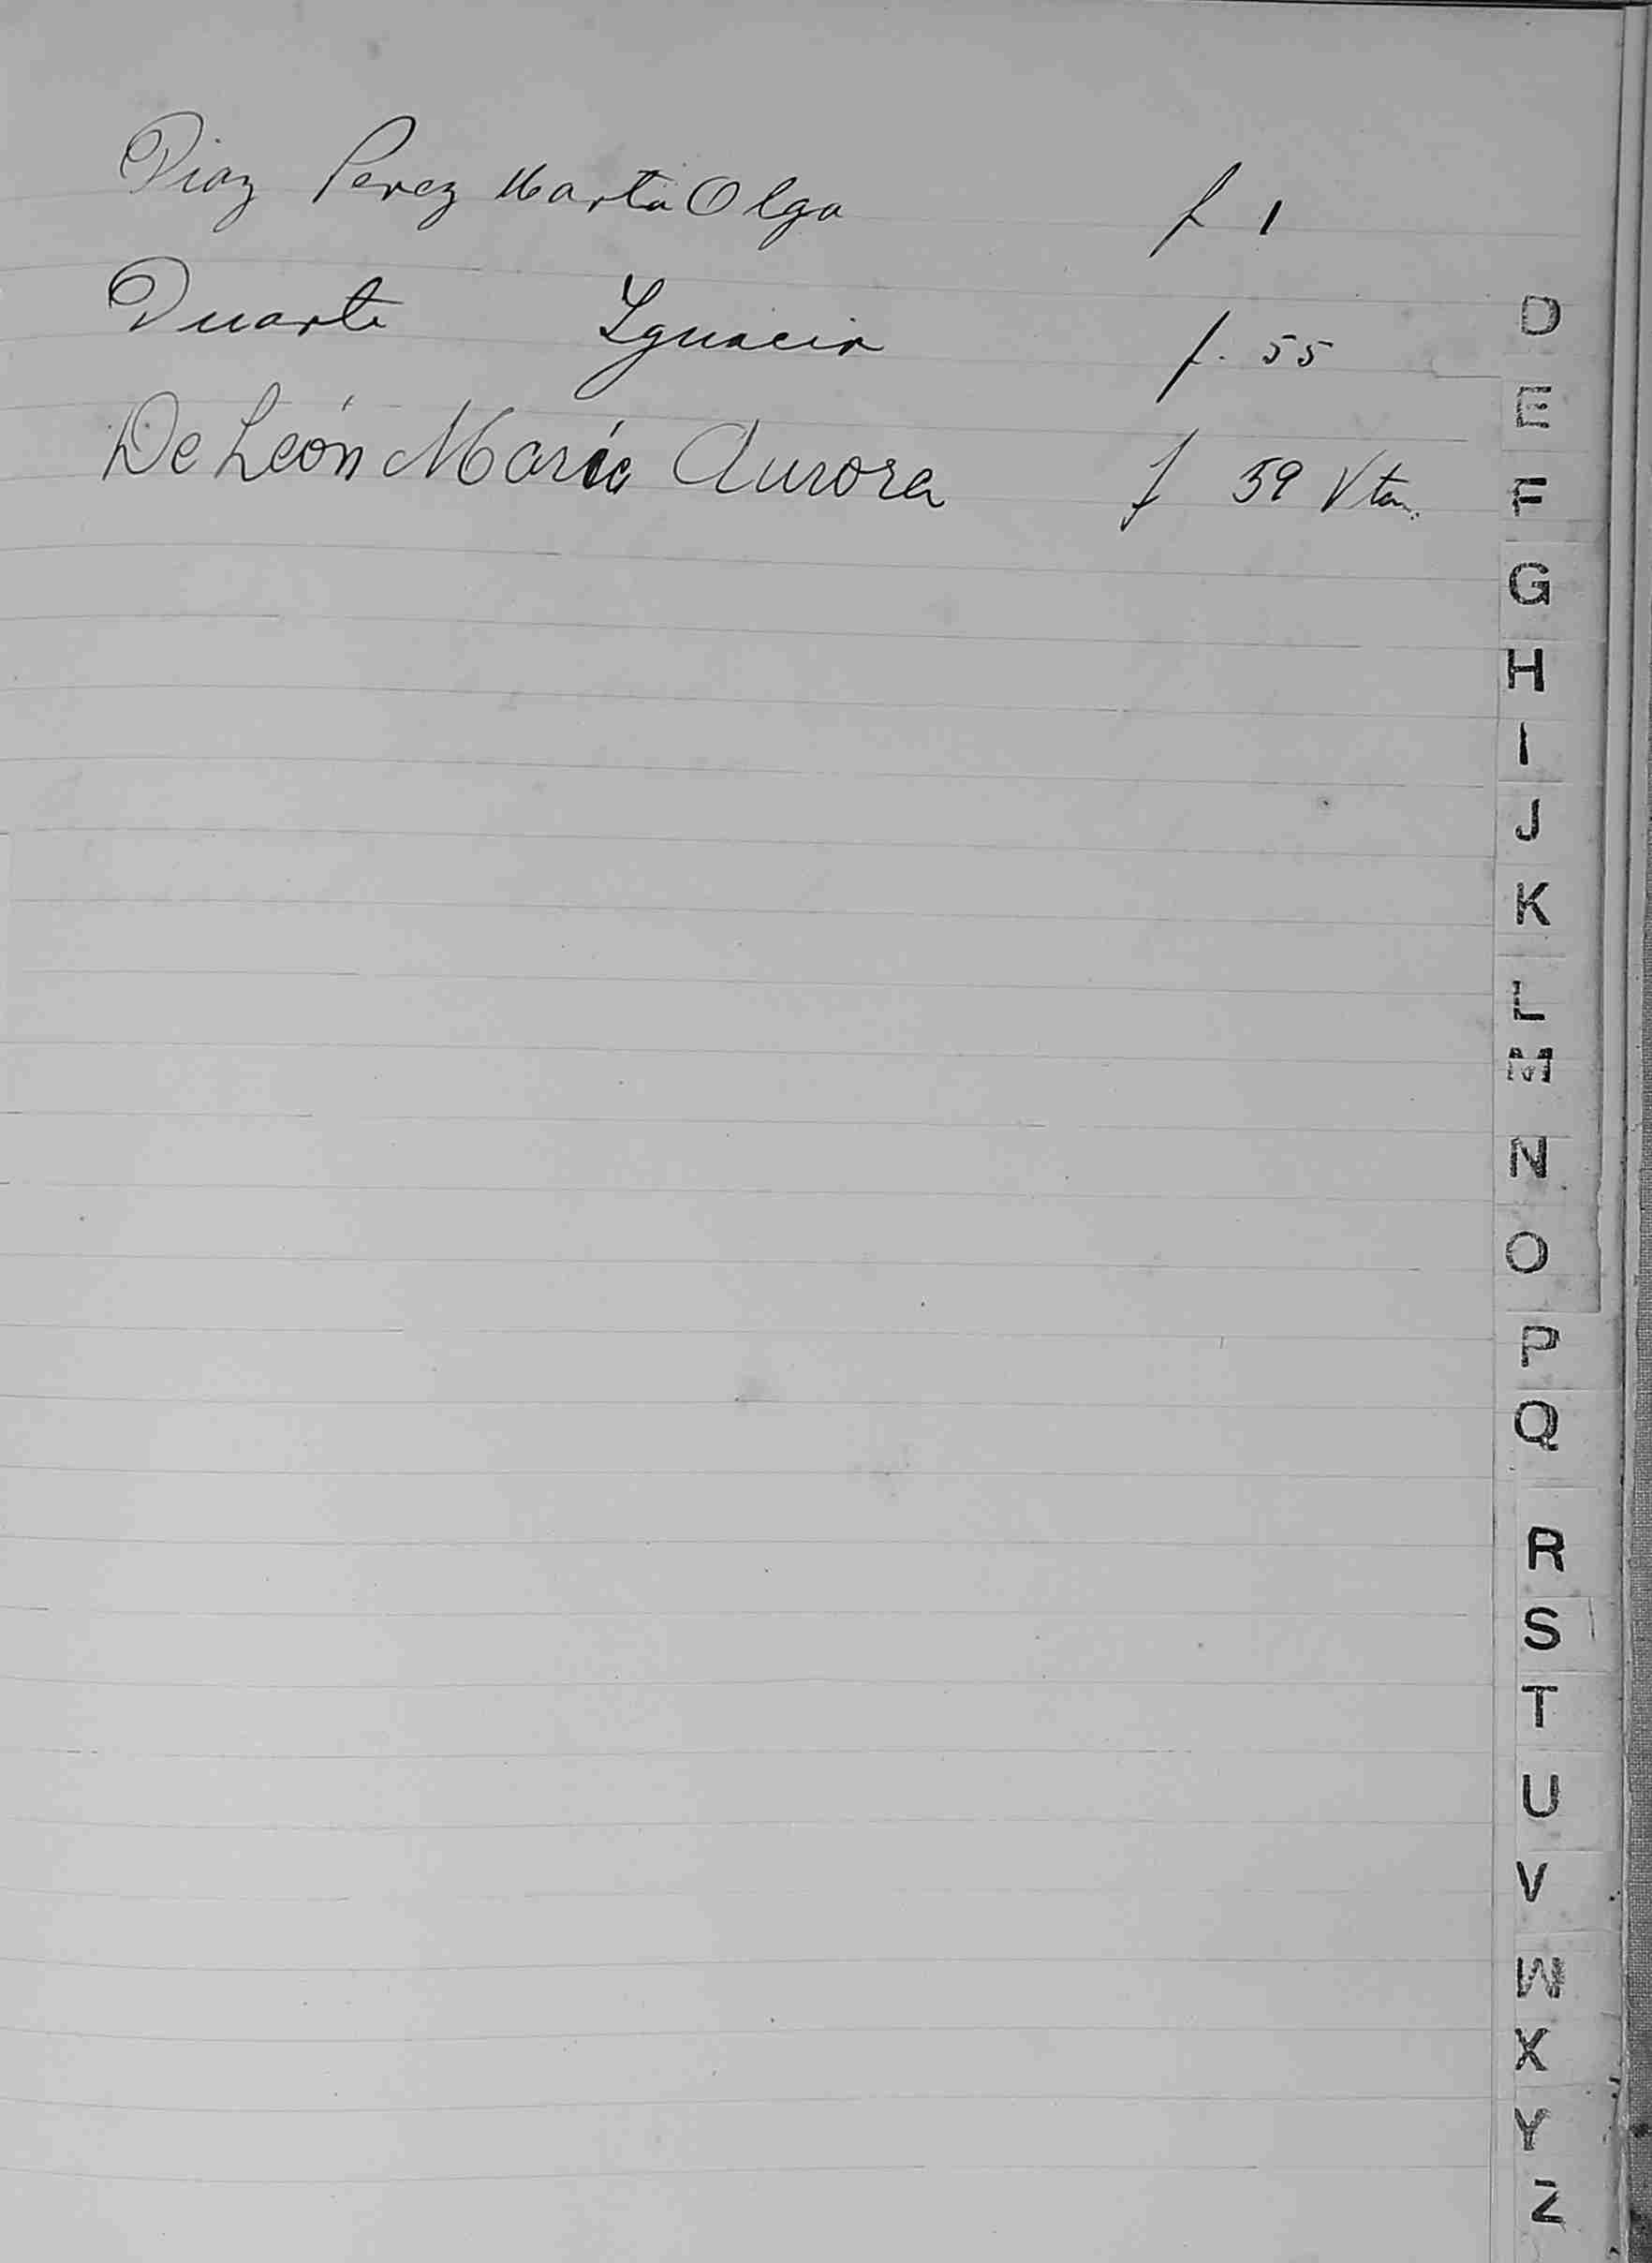 Diaz Perez Marta Olga f 1
Duarte Ygnacio f. 55
De León María Aurora f 59 Vta.
D
E
F
G
H
I
J
K
L
M
N
O
P
Q
R
S
T
U
V
W
X
Y
Z